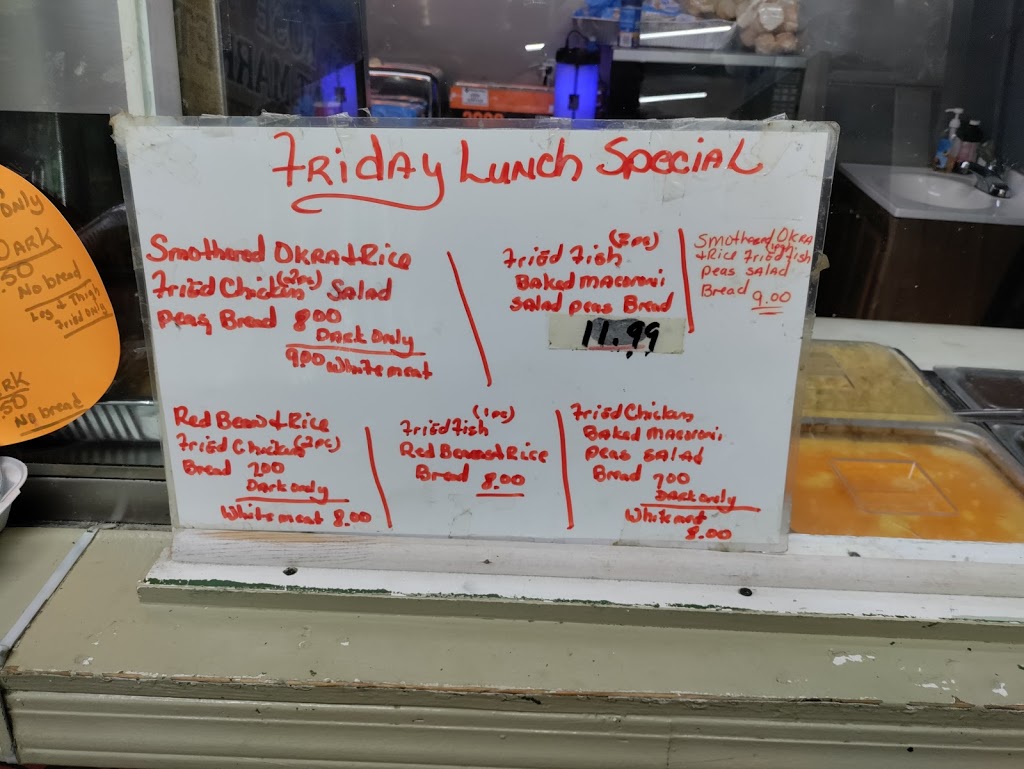 Friday Lunch Special
Smothered Okra + Rice
Fried Chicken (2pc) Salad
Peas Bread 8.00
Dark Only
9.00 White meat
Fried Fish (2pc)
Baked Macaroni
Salad Peas Bread
11.99
Smothered Okra
+ Rice Fried Fish (1pc)
Peas Salad
Bread 9.00
Red Bean + Rice
Fried Chicken (2pc)
Bread 700
Dark only
White meat 8.00
Fried Fish (1pc)
Red Beans + Rice
Bread 8.00
Fried Chicken
Baked Macaroni
Peas Salad
Bread 700
Dark only
White meat
8.00
Only
Dark
50
No bread
Leg + Thigh
Fried Only
RK
50
No bread